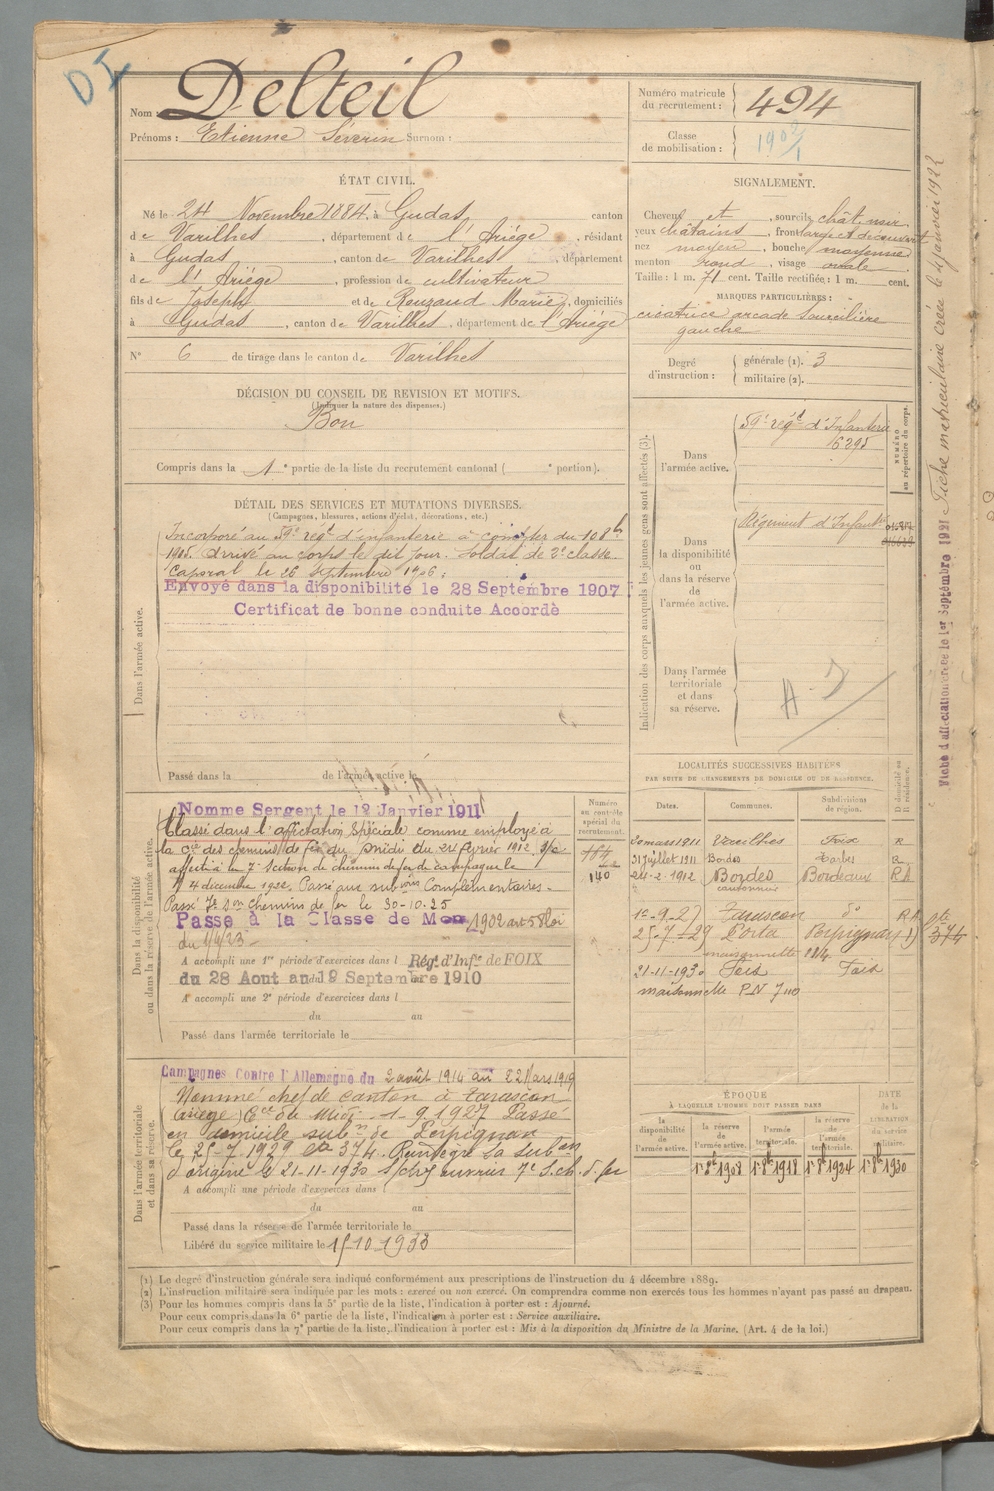 DI
Nom : Delteil
Prénoms : Etienne Séverin Surnom :
Numéro matricule du recrutement : 494
Classe de mobilisation : 1902/1
ÉTAT CIVIL.
Né le 24 Novembre 1884, à Gudas canton
de Varilhes, département de l'Ariége, résidant
à Gudas, canton de Varilhes, département
de l'Ariége, profession de cultivateur
fils de Joseph et de Rouzaud Marie, domiciliés
à Gudas, canton de Varilhes, département de l'Ariége
N° 6 de tirage dans le canton de Varilhes
SIGNALEMENT.
Cheveux et, sourcils chât. noir
yeux châtains, front large et découvert
nez moyen, bouche moyenne
menton rond, visage ovale
Taille : 1 m. 71 cent. Taille rectifiée : 1 m. cent.
MARQUES PARTICULIÈRES :
cicatrice arcade sourcilière
gauche
Degré d'instruction :
générale (1). 3
militaire (2).
DÉCISION DU CONSEIL DE REVISION ET MOTIFS.
(Indiquer la nature des dispenses.)
Bon
Compris dans la 1e partie de la liste du recrutement cantonal ( e portion).
DÉTAIL DES SERVICES ET MUTATIONS DIVERSES.
(Campagnes, blessures, actions d'éclat, décorations, etc.)
Dans l'armée active.
Incorporé au 59e régt d'infanterie à compter du 10 8bre
1905. Arrivé au corps le dit jour. Soldat de 2e classe.
Caporal le 26 septembre 1906.
Envoyé dans la disponibilité le 28 Septembre 1907
Certificat de bonne conduite Accordé
Passé dans la de l'armée active le
Indication des corps auxquels les jeunes gens sont affectés (3).
NUMÉRO au répertoire du corps.
Dans l'armée active.
59e régt d'Infanterie
6295
Dans la disponibilité ou dans la réserve de l'armée active.
Régiment d'Infantie
Dans l'armée territoriale et dans sa réserve.
Fiche d'affectation créée le 1er Septembre 1921 Fiche matriculaire créée le 4 février 1922
Dans la disponibilité ou dans la réserve de l'armée active.
Nommé Sergent le 12 Janvier 1911
Classé dans l'affectation spéciale comme employé à
la Cie des chemins de fer du Midi du 24 février 1912. S/c
affecté à la 7e section de chemins de fer de campagne le
4 décembre 1922. Passé aux subons Complémentaires
Passé 7e Son chemins de fer le 30-10-25
Passé à la Classe de Mon 1902 art 58 loi
du 1/4/23
A accompli une 1re période d'exercices dans l Rég. d'Infie de FOIX
du 28 Aout au 19 Septembre 1910
A accompli une 2e période d'exercices dans l
du au
Passé dans l'armée territoriale le
Numéro au contrôle spécial du recrutement.
140
LOCALITÉS SUCCESSIVES HABITÉES
PAR SUITE DE CHANGEMENTS DE DOMICILE OU DE RÉSIDENCE.
Dates. Communes. Subdivisions de région. D domicile ou R résidence.
30 mars 1911 Varilhes Foix R
31 juillet 1911 Bordes Tarbes R
24-2-1912 Bordes Bordeaux R A
cantonnier
1er-9-27 Tarascon do R A
25-7-29 Porta Perpignan D cte 374
maisonnette 114
21-11-1930 Foix Foix
maisonnette PN 7
Dans l'armée territoriale et dans sa réserve.
Campagnes Contre l'Allemagne du 2 août 1914 au 22 Mars 1919
Nommé chef de canton à Tarascon
(Ariege) Cie du Midi. 1-9-1927 Passé
en domicile subon de Perpignan
le 25-7-1929 cte 374. Réintègre la subon
d'origine le 21-11-1930 7e S. ch. d. fer
A accompli une période d'exercices dans l
du au
Passé dans la réserve de l'armée territoriale le
Libéré du service militaire le 15-10-1933
ÉPOQUE
À LAQUELLE L'HOMME DOIT PASSER DANS
la disponibilité de l'armée active. la réserve de l'armée active. l'armée territoriale. la réserve de l'armée territoriale. DATE de la LIBÉRATION du service militaire.
1er 8bre 1908 1er 8bre 1918 1er 8bre 1924 1er 8bre 1930
(1) Le degré d'instruction générale sera indiqué conformément aux prescriptions de l'instruction du 4 décembre 1889.
(2) L'instruction militaire sera indiquée par les mots : exercé ou non exercé. On comprendra comme non exercés tous les hommes n'ayant pas passé au drapeau.
(3) Pour les hommes compris dans la 5e partie de la liste, l'indication à porter est : Ajourné.
Pour ceux compris dans la 6e partie de la liste, l'indication à porter est : Service auxiliaire.
Pour ceux compris dans la 7e partie de la liste, l'indication à porter est : Mis à la disposition du Ministre de la Marine. (Art. 4 de la loi.)